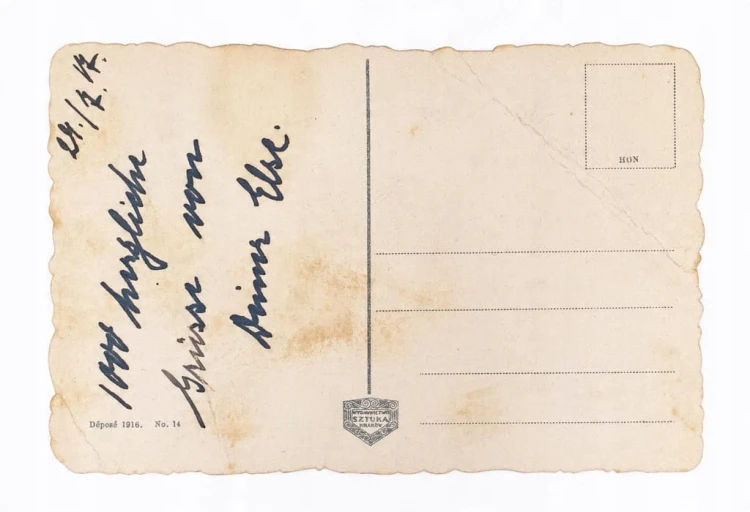 24./7.17.
1000 herzliche
Grüsse von
Deiner Else.
Déposé 1916. No. 14
WYDAWNICTWO
SZTUKA
KRAKÓW
HON